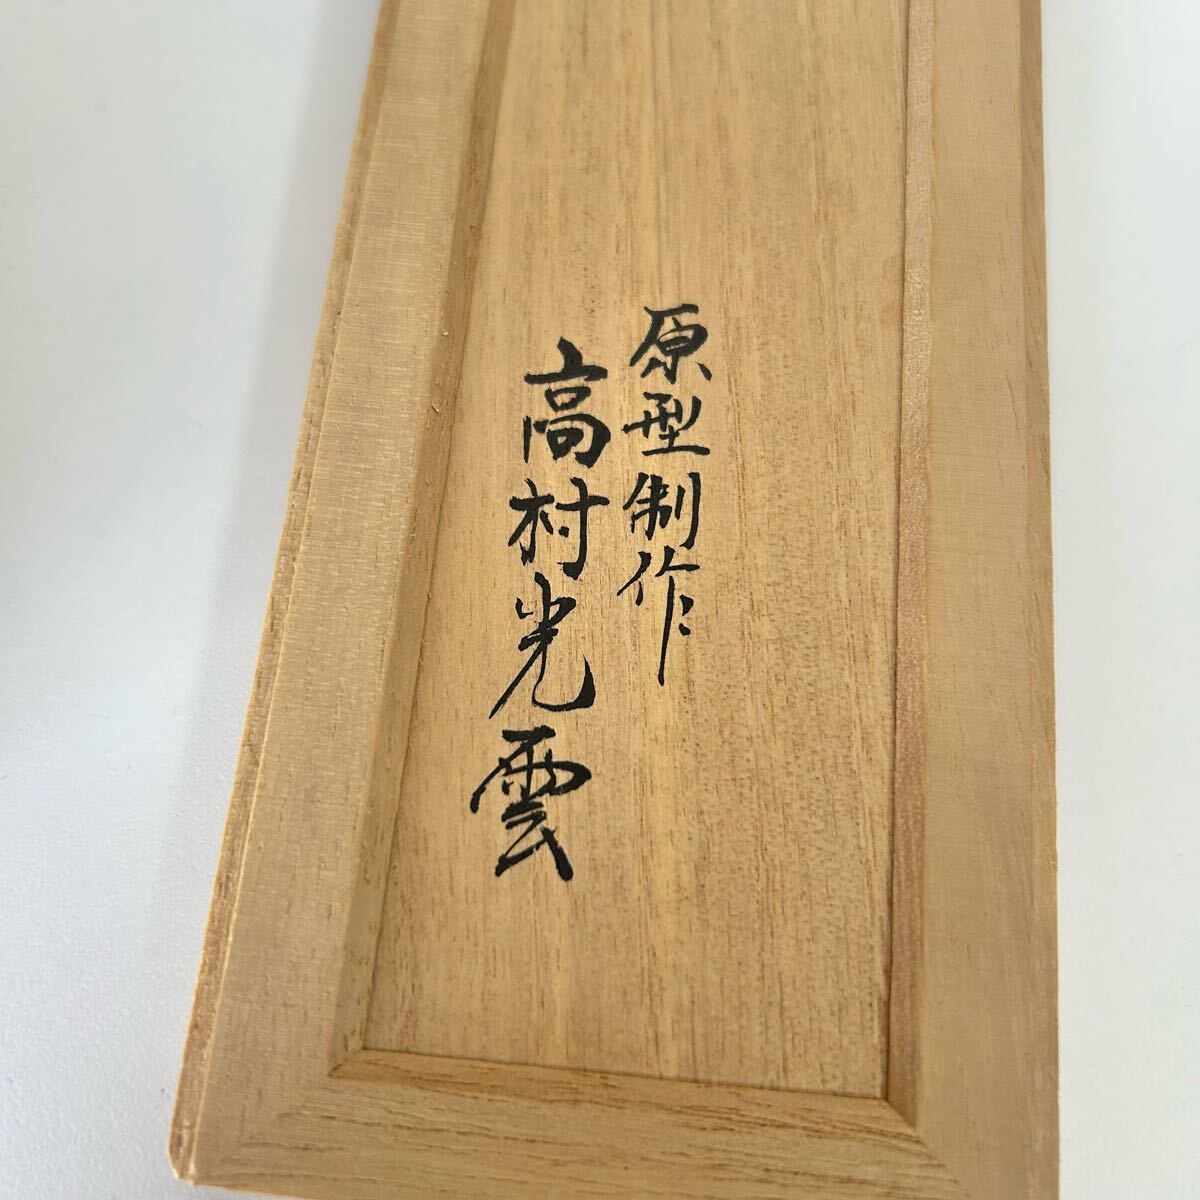 原型制作
高村光雲